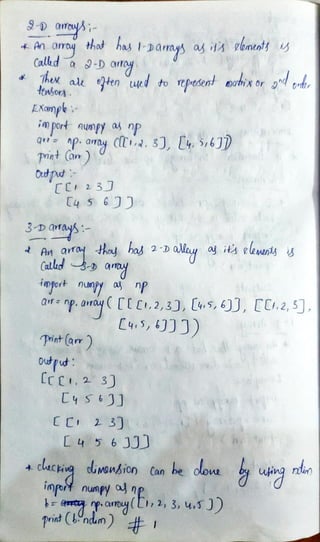 2-D arrays:-
* An array that has 1-D arrays as it's elements is
called a 2-D array.
* These are often used to represent matrix or 2nd order
tensors.
Example:-
import numpy as np
arr= np.array ([[1,2,3], [4,5,6]])
print (arr)
output:-
[[1 2 3]
[4 5 6]]
3-D arrays:-
* An array that has 2-D array as it's elements is
called 3-D array
import numpy as np
arr= np.array([[[1,2,3], [4,5,6]], [[1,2,3],
[4,5,6]]])
print(arr)
output:
[[[1 2 3]
[4 5 6]]
[[1 2 3]
[4 5 6]]]
* checking dimension can be done by using ndim
import numpy as np
b= np.array([1,2,3,4,5])
print (b.ndim) # 1